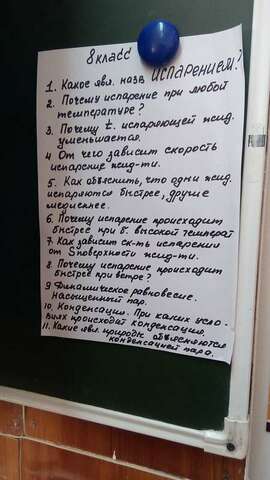 8 класс
1. Какое явл. назв ИСПАРЕНИЕМ?
2. Почему испарение при любой
температуре?
3. Почему t. испаряющей жид.
уменьшается.
4 От чего зависит скорость
испарение жид-ти.
5. Как объяснить, что одни жид.
испаряются быстрее, другие
медленнее.
6. Почему испарение происходит
быстрее при б. высокой температ
7 Как зависит ск-ть испарении
от S поверхности жид-ти.
8 Почему испарение происходит
быстрее при ветре?
9 Динамическое равновесие.
Насыщенный пар.
10 Конденсация. При каких усло-
виях происходит конденсация.
11. Какие явл. природы объясняются
конденсацией пара.